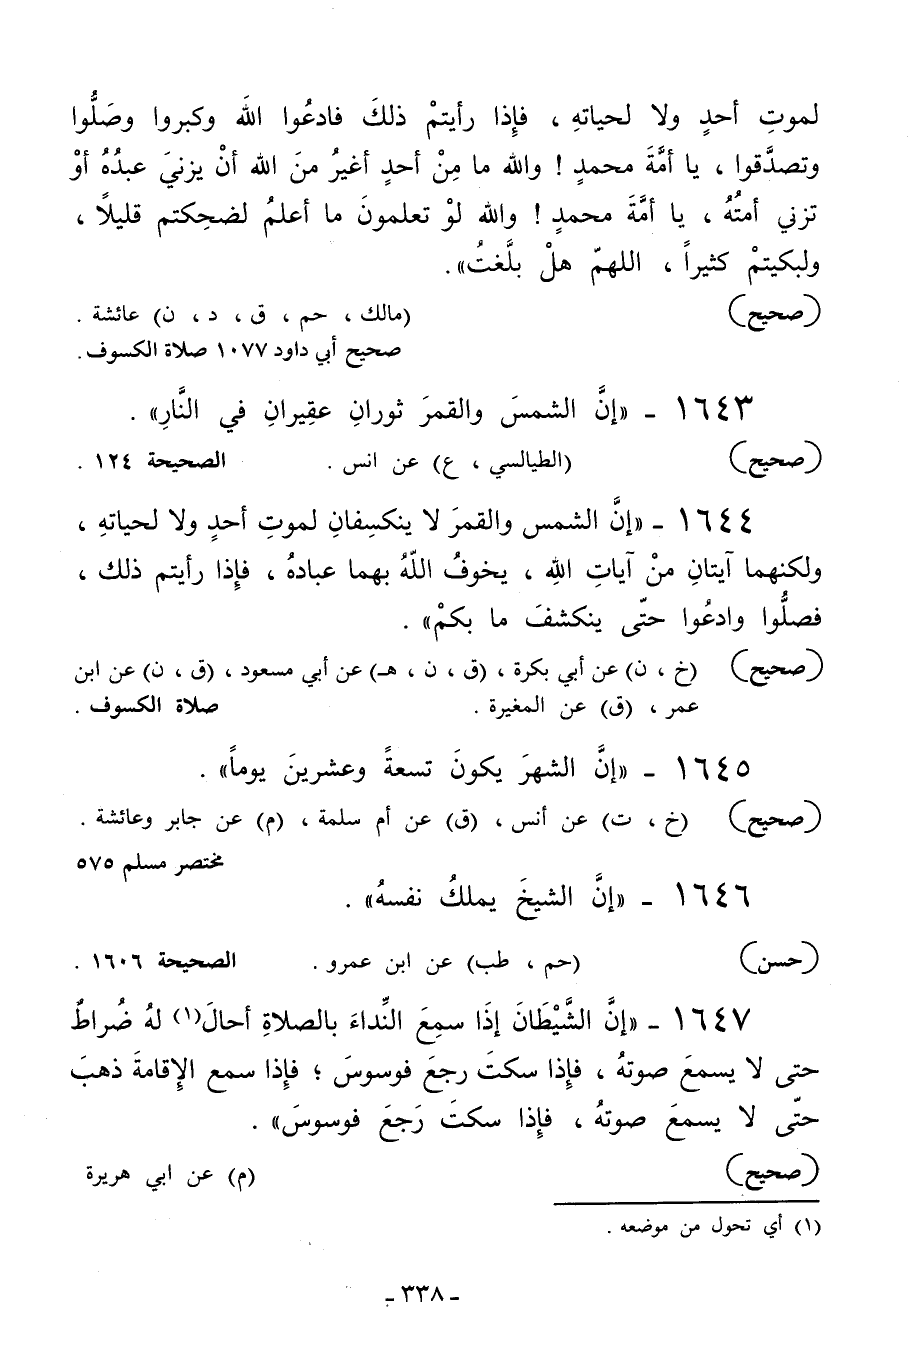 لموتِ أحدٍ ولا لحياتهِ ، فإذا رأيتمْ ذلكَ فادعُوا اللهَ وكبروا وصَلُّوا
وتصدَّقوا ، يا أمَّةَ محمدٍ ! والله ما مِنْ أحدٍ أغيرُ منَ الله أنْ يزنيَ عبدُهُ أوْ
تزني أمتُهُ ، يا أمَّةَ محمدٍ ! والله لوْ تعلمونَ ما أعلمُ لضحِكتم قليلاً ،
ولبكيتمْ كثيراً ، اللهمّ هلْ بلَّغتُ» .
(صحيح) (مالك ، حم ، ق ، د ، ن) عائشة .
صحيح أبي داود ١٠٧٧ صلاة الكسوف .
١٦٤٣ - «إنَّ الشمسَ والقمرَ ثورانِ عقِيرانِ في النَّارِ» .
(صحيح) (الطيالسي ، ع) عن انس . الصحيحة ١٢٤ .
١٦٤٤ - «إنَّ الشمس والقمرَ لا ينكسِفانِ لموتِ أحدٍ ولا لحياتهِ ،
ولكنهما آيتانِ منْ آياتِ اللهِ ، يخوفُ اللّهُ بهما عبادهُ ، فإذا رأيتم ذلك ،
فصلُّوا وادعُوا حتّى ينكشفَ ما بكمْ» .
(صحيح) (خ ، ن) عن أبي بكرة ، (ق ، ن ، هـ) عن أبي مسعود ، (ق ، ن) عن ابن
عمر ، (ق) عن المغيرة . صلاة الكسوف .
١٦٤٥ - «إنَّ الشهرَ يكونَ تسعةً وعشرينَ يوماً» .
(صحيح) (خ ، ت) عن أنس ، (ق) عن أم سلمة ، (م) عن جابر وعائشة .
مختصر مسلم ٥٧٥
١٦٤٦ - «إنَّ الشيخَ يملكُ نفسهُ» .
(حسن) (حم ، طب) عن ابن عمرو . الصحيحة ١٦٠٦ .
١٦٤٧ - «إنَّ الشَّيْطَانَ إذَا سمِعَ النِّداءَ بالصلاةِ أحالَ(١) لهُ ضُراطٌ
حتى لا يسمعَ صوتهُ ، فإذا سكتَ رجعَ فوسوسَ ؛ فإذا سمع الإقامةَ ذهبَ
حتّى لا يسمعَ صوتهُ ، فإذا سكتَ رَجعَ فوسوسَ» .
(صحيح) (م) عن ابي هريرة
(١) أي تحول من موضعه .
- ٣٣٨ -